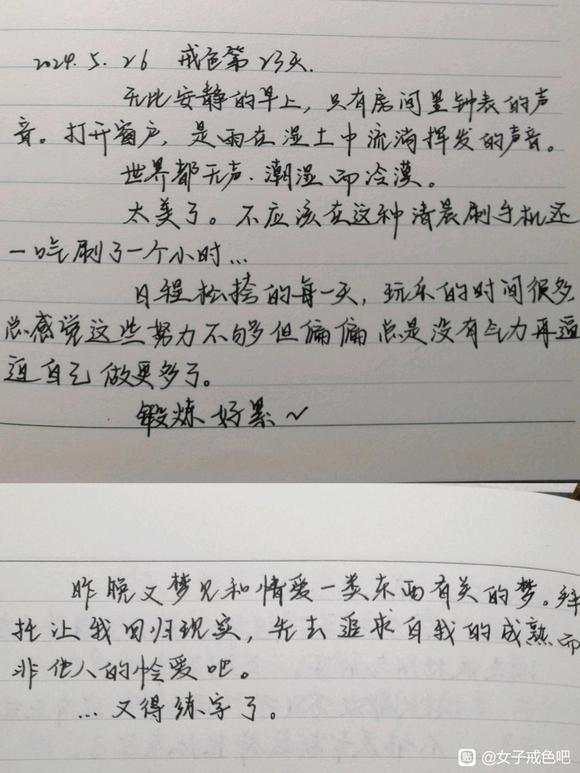 2024.5.26 戒色第23天.
无比安静的早上，只有房间里钟表的声
音。打开窗户，是雨在湿土中流淌挥发的声音。
世界都无声.潮湿而冷漠。
太美了。不应该在这种清晨刷手机还
一口气刷了一个小时...
日程松捨的每一天，玩乐的时间很多
总感觉这些努力不够但偏偏总是没有气力再逼
迫自己做更多了。
锻炼好累~
昨晚又梦见和情爱一类东西有关的梦。拜
托让我回归现实，先去追求自我的成熟而
非他人的怜爱吧。
...又得练字了。
贴 @女子戒色吧